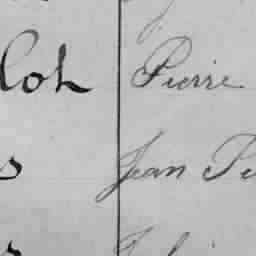 loh Pierre
s Jean Pi